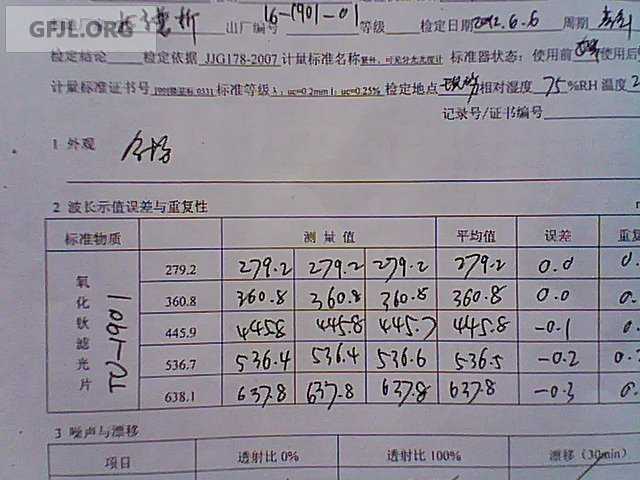 GFJL.ORG
出厂编号 16-1901-01 等级 检定日期 2012.6.6 周期
检定结论 检定依据 JJG178-2007 计量标准名称 紫外、可见分光光度计 标准器状态：使用前 使用后
计量标准证书号 标准等级 λ：uc=0.2nm 检定地点 现场 相对湿度 75 %RH 温度 2
记录号/证书编号
1 外观 合格
2 波长示值误差与重复性
标准物质 测 量 值 平均值 误差 重复
氧化钬滤光片
279.2 279.2 279.2 279.2 279.2 0.0 0.
360.8 360.8 360.8 360.8 360.8 0.0 0.
445.9 445.8 445.8 445.7 445.8 -0.1 0.
536.7 536.4 536.4 536.6 536.5 -0.2 0.
638.1 637.8 637.8 637.8 637.8 -0.3 0.
3 噪声与漂移
项目 透射比 0% 透射比 100% 漂移（30min）